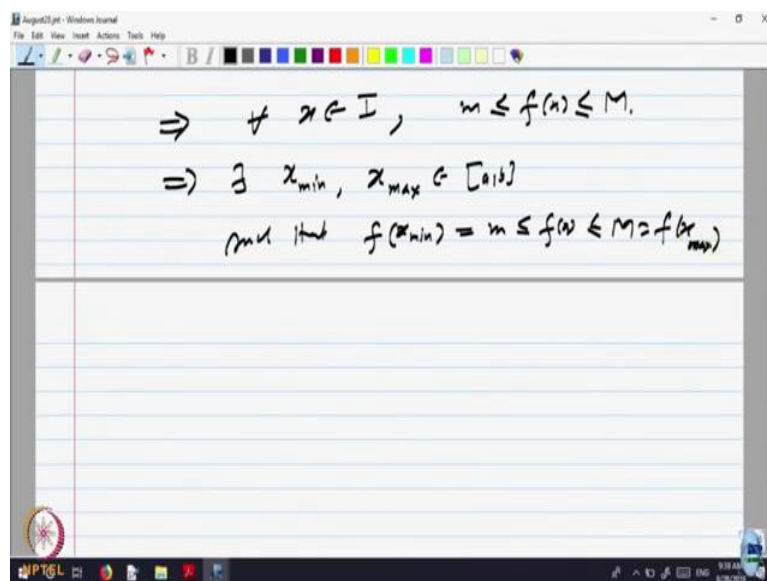 August28.jnt - Windows Journal
File Edit View Insert Actions Tools Help
B I
⇒ ∀ x ∈ I, m ≤ f(x) ≤ M.
⇒ ∃ x_min, x_max ∈ [a,b]
such that f(x_min) = m ≤ f(x) ≤ M = f(x_max)
NPTEL
ENG 9:38 AM